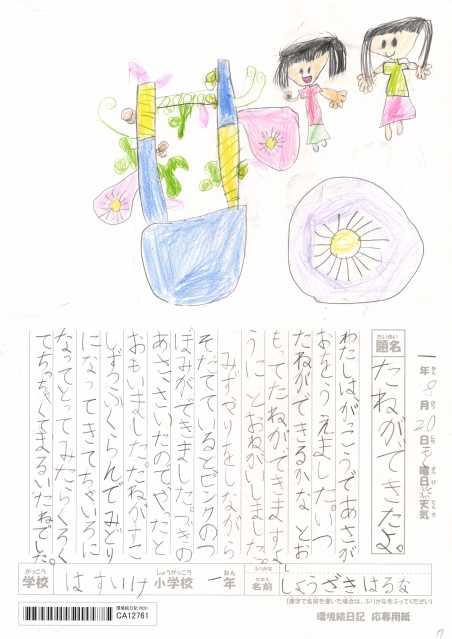 一年8月20日 曜日 天気
ねん がつ にち ようび てんき
だいめい
題名 たねができたよ。
わたしはがっこうであさが
おをうえました。いつ
たねができるかな とお
もってたねができますよ
うに とおねがいしました。
みずやりをしながら
そだてているとピンクのつ
ぼみができました。つぎの
あさ、さいたのでやったと
おもいました。たねがすこ
しずつふくらんでみどり
になってきてちゃいろに
なってとってみたらくろく
てちっちゃくてまるいたねでした。
がっこう しょうがっこう ねん ふりがな
学校 はすいけ 小学校 一年 名前 しょうざきはるな
なまえ
(漢字で名前を書いた場合は、ふりがなをふってください)
環境絵日記 2020
CA12761
環境絵日記 応募用紙
17